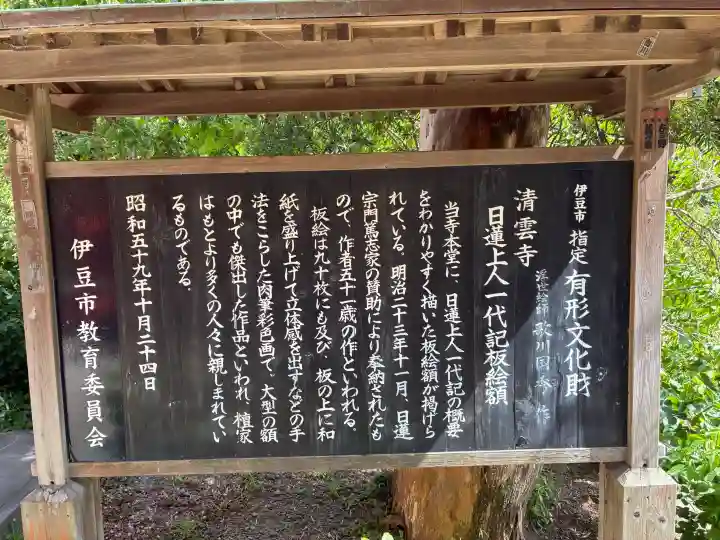 伊豆市 指定 有形文化財
清雲寺 浮世絵師 歌川国秀 作
日蓮上人一代記板絵額
当寺本堂に、日蓮上人一代記の概要
をわかりやすく描いた板絵額が掲げら
れている。明治二十三年十一月、日蓮
宗門篤志家の賛助により奉納されたも
ので、作者五十一歳の作といわれる。
板絵は九十枚にも及び、板の上に和
紙を盛り上げて立体感を出すなどの手
法をこらした肉筆彩色画で、大型の額
の中でも傑出した作品といわれ、檀家
はもとより多くの人々に親しまれてい
るものである。
昭和五十九年十月二十四日
伊豆市教育委員会